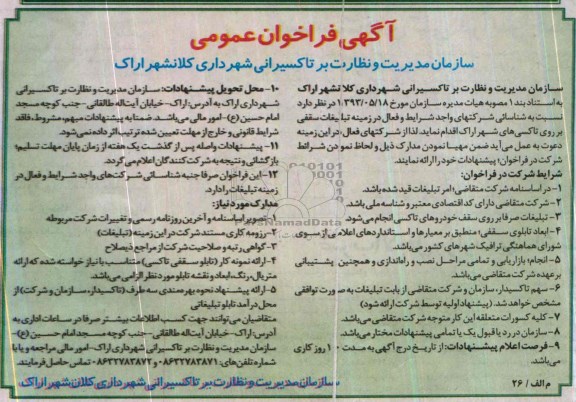 آگهی فراخوان عمومی
سازمان مدیریت و نظارت بر تاکسیرانی شهرداری کلانشهر اراک
سازمان مدیریت و نظارت بر تاکسیرانی شهرداری کلانشهر اراک
به استناد بند ۱ مصوبه هیات مدیره سازمان مورخ ۱۳۹۳/۰۵/۱۸ در نظر دارد
نسبت به شناسائی شرکتهای واجد شرایط و فعال در زمینه تبلیغات سقفی
بر روی تاکسی های شهر اراک اقدام نماید. لذا از شرکتهای فعال در این زمینه
دعوت به عمل می آید ضمن مهیا نمودن مدارک ذیل و لحاظ نمودن شرائط
شرکت در فراخوان؛ پیشنهادات خود را ارائه نمایند.
شرایط شرکت در فراخوان:
۱- در اساسنامه شرکت متقاضی؛ امر تبلیغات قید شده باشد.
۲- شرکت متقاضی دارای کد اقتصادی معتبر و شناسه ملی باشد.
۳- تبلیغات صرفا بر روی سقف خودروهای تاکسی انجام می شود.
۴- ابعاد تابلوی سقفی؛ منطبق بر معیارها و استانداردهای اعلامی از سوی
شورای هماهنگی ترافیک شهرهای کشور می باشد.
۵- انجام بازاریابی و تمامی مراحل نصب و راه اندازی و همچنین پشتیبانی
بر عهده شرکت متقاضی می باشد.
۶- سهم تاکسیدار، سازمان و شرکت متقاضی از بابت تبلیغات به صورت توافقی
مشخص خواهد شد. (پیشنهاد اولیه توسط شرکت ارائه شود)
۷- کلیه کسورات متعلقه این کار متوجه شرکت متقاضی می باشد.
۸- سازمان در رد یا قبول یک یا تمامی پیشنهادات مختار می باشد.
۹- فرصت اعلام پیشنهادات: از تاریخ درج آگهی به مدت ۱۰ روز کاری
می باشد.
م الف / ۲۶
۱۰- محل تحویل پیشنهادات: سازمان مدیریت و نظارت بر تاکسیرانی
شهرداری اراک به آدرس: اراک- خیابان آیت اله طالقانی - جنب کوچه مسجد
امام حسین (ع)- امور مالی می باشد. ضمنا به پیشنهادات مبهم، مشروط، فاقد
شرایط قانونی و خارج از مهلت تعیین شده ترتیب اثر داده نمی شود.
۱۱- پیشنهادات واصله پس از گذشت یک هفته از زمان پایان مهلت تسلیم؛
بازگشائی و نتیجه به شرکت کنندگان اعلام می گردد.
۱۲- این فراخوان صرفا جنبه شناسائی شرکت های واجد شرایط و فعال در
زمینه تبلیغات را دارد.
مدارک مورد نیاز:
۱- تصویر اساسنامه و آخرین روزنامه رسمی و تغییرات شرکت مربوطه
۲- رزومه کاری مستند شرکت در این زمینه (تبلیغات)
۳- گواهی رتبه و صلاحیت شرکت از مراجع ذیصلاح
۴- ارائه نمونه کار (تابلو سقفی تاکسی) متناسب با نیاز خواسته شده که ارائه
متریال، رنگ، ابعاد و نقشه تابلو مورد نظر الزامی می باشد.
۵- ارائه پیشنهاد نحوه بهره مندی سه طرف (تاکسیدار، سازمان و شرکت) از
محل درآمد تابلو تبلیغاتی
متقاضیان می توانند جهت کسب اطلاعات بیشتر صرفا در ساعات اداری به
آدرس: اراک- خیابان آیت اله طالقانی- جنب کوچه مسجد امام حسین (ع)-
سازمان مدیریت و نظارت بر تاکسیرانی شهرداری اراک- امور مالی مراجعه و یا با
شماره تلفن های: ۰۸۶۳۲۷۸۳۸۷۱ و ۰۸۶۳۲۷۸۳۸۷۲ تماس حاصل فرمایند.
سازمان مدیریت و نظارت بر تاکسیرانی شهرداری کلان شهر اراک